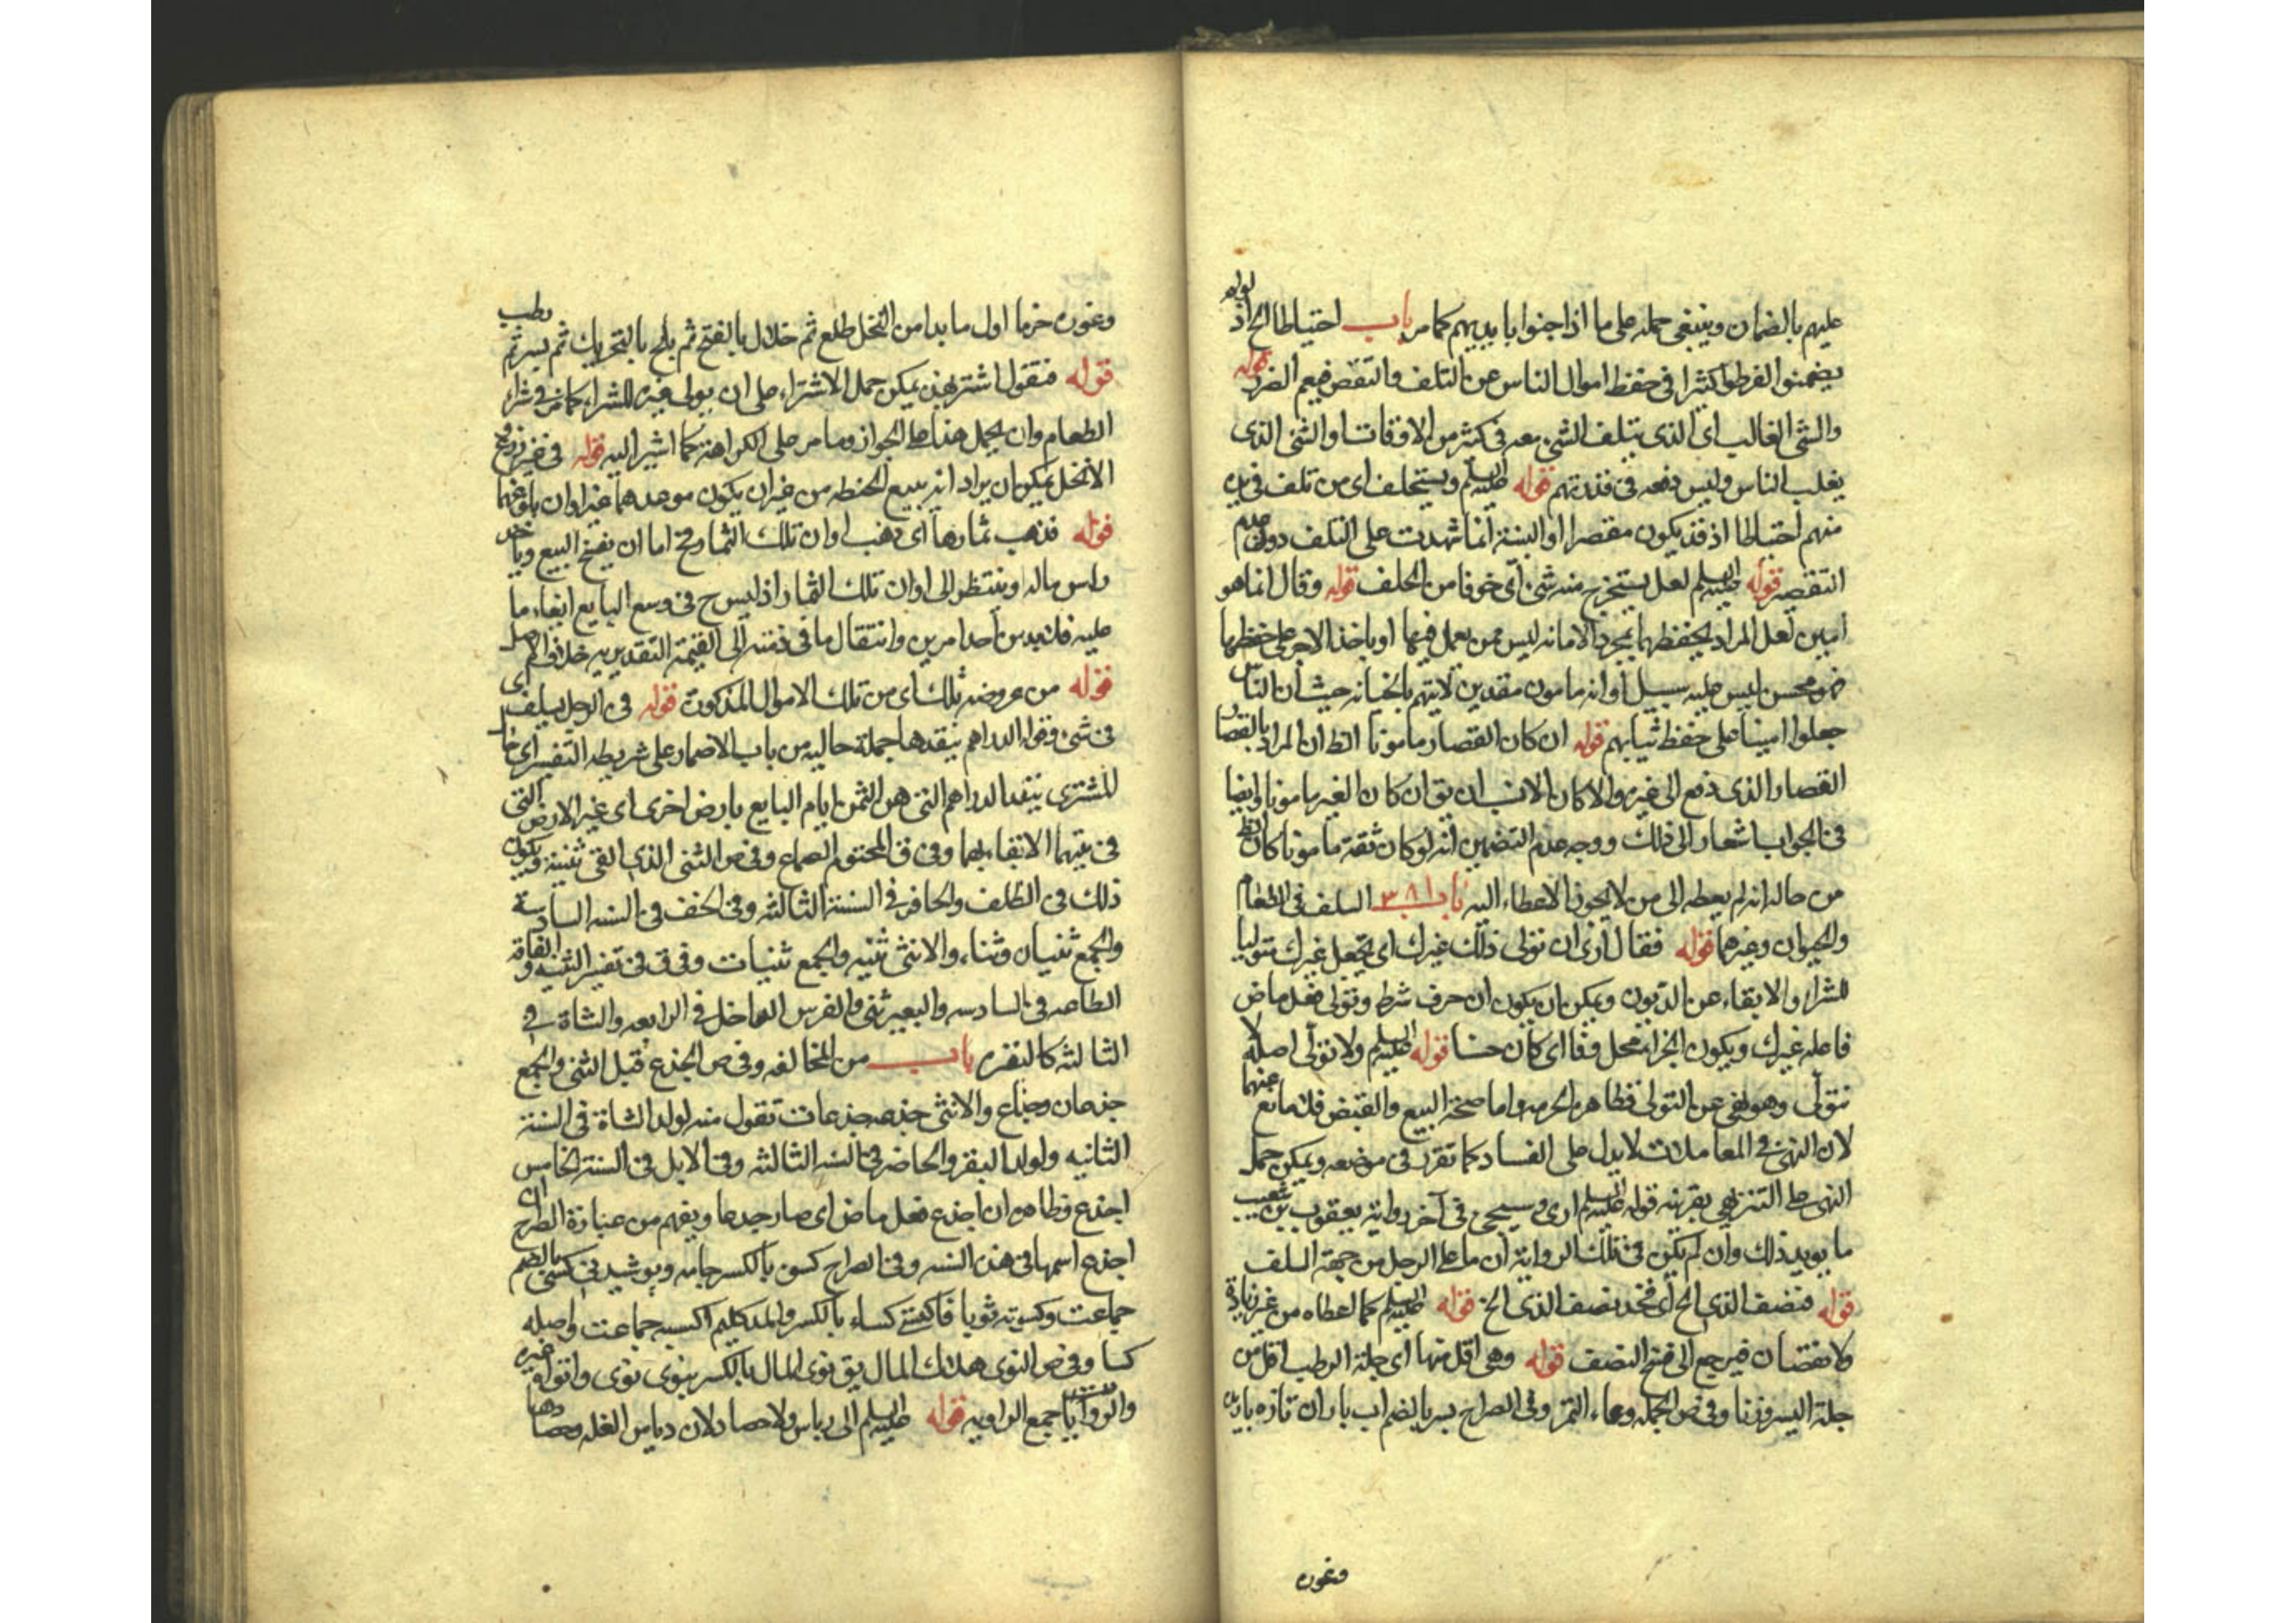 عليهم بالضمان وينبغى حمله على ما اذا جنوا بايديهم كما مر باب احتياطا الخ اذ لو لم
يضمنوا لفرطوا كثيرا فى حفظ اموال الناس عن التلف والنقص فيعم الضرر قوله
والشئ الغالب اى الذى يتلف الشئ معه فى كثير من الاوقات او الشئ الذى
يغلب الناس وليس دفعه فى قدرتهم قوله عليه السلم ويستحلف اى من تلف فى يده
منهم احتياطا اذ قد يكون مقصرا او البينة انما شهدت على التلف دون عدم
التقصير قوله عليه السلم لعله يستخرج منه شئ اى خوفا من الحلف قوله وقال انما هو
امين لعل المراد يحفظهما بمجرد الامانه ليس ممن يعمل فيهما او ياخذ الاجر على حفظهما
فهو محسن ليس عليه سبيل او انه مامون مقدين لا يتهم بالخيانه حيث ان الناس
جعلوا امينا على حفظ ثيابهم قوله ان كان القصار مامونا الظ ان المراد بالقصار
القصار الذى دفع الى غيره والا كان الانسب ان يق ان كان الغير مامونا وايضا
فى الجواب اشعار الى ذلك ووجه عدم التضمين انه لو كان ثقة مامونا كان الظ
من حاله انه لم يعطه الى من لا يجوز الاعطاء اليه باب ٣٨١ السلف فى الطعام
والحيوان وغيرهما قوله فقال ارى ان تولى ذلك غيرك اى تجعل غيرك متوليا
للشراء والايفاء عن الديون ويمكن ان يكون ان حرف شرط وتولى فعل ماض
فاعله غيرك ويكون الجزاء محذوفا اى كان حسنا قوله عليه السلم ولا تولى اصله لا
تتولى وهو نهى عن التولى فظاهره الحرمه واما صحة البيع والقبض فلا مانع عنهما
لان النهى فى المعاملات لا يدل على الفساد كما تقرر فى موضعه ويمكن حمل
النهى على التنزيهى بقرينة قوله عليه السلم ارى وسيجئ فى آخر رواية يعقوب بن شعيب
ما يويد ذلك وان لم يكن فى تلك الرواية ان ما على الرجل من جهة السلف
قوله فنصف الذى الخ اى فخذ نصف الذى الخ قوله عليه السلم كما اعطاه من غير زيادة
ولا نقصان فيرجع الى فتح النصف قوله وهى اقل منها اى جلة الرطب اقل من
جلة البسر وزنا وفى ص الجله وعاء التمر وفى الصراح بسر بالضم اب باران تازه باريده
وغوره
وغوره خرما اول ما بدا من النخل طلع ثم خلال بالفتح ثم بلح بالتحريك ثم بسر ثم رطب
قوله فنقول اشتر بهذه يمكن حمل الاشتراء على ان يولى غيره للشراء كما مر فى شراء
الطعام وان يحمل هذا على الجواز وما مر على الكراهة كما اشير اليه قوله فى غير زرع
الا نخل يمكن ان يراد انه يبيع الحنطه من غير ان يكون موعدهما غير اوان بلوغهما
قوله فذهب ثمارها اى ذهب اوان تلك الثمار وح اما ان يفسخ البيع وياخذ
راس ماله او ينتظر الى اوان تلك الثمار اذ ليس ح فى وسع البايع ايفاء ما
عليه فلا بد من احد امرين وانتقال ما فى ذمته الى القيمة التقديريه خلاف الاصل
قوله من عروضه تلك اى من تلك الاموال المذكورة قوله فى الرجل يسلف اى
فى شئ وقوله الدراهم ينقدها جملة حاليه من باب الاضمار على شريطه التفسير اى
للمشترى ينقد الدراهم التى هى الثمن ايام البايع بارض اخرى اى غير الارض التى
فى بيتهما الانتفاء بها وفى ق المختوم الصاع وفى ص الثنى الذى القى ثنيته ويكون
ذلك فى الظلف والحافر فى السنة الثالثه وفى الخف فى السنه السادسة
والجمع ثنيان وثناء والانثى ثنيه والجمع ثنيات وفى ق فى تفسير الثنيه والناقه
الطاعنه فى السادسه والبعير ثنى والفرس الداخل فى الرابعه والشاة فى
الثالثه كالبقره باب من المخالفه وفى ص الجذع قبل الثنى والجمع
جذعان وجذاع والانثى جذعه وجذعات تقول منه لولد الشاة فى السنة
الثانيه ولولد البقر والحافر فى السنه الثالثه وفى الابل فى السنة الخامس
اجذع وظاهره ان اجذع فعل ماض اى صار جذعا ويفهم من عبارة الصراح ان
اجذع اسمها فى هذه السنه وفى الصراح كسوه بالكسر جامه وپوشيدنى كسى بالضم
جماعت وكسوته ثوبا فاكتسى كساء بالكسر والمد كليم اكسيه جماعت واصله
كساو وفى ص التوى هلاك المال يق توى المال بالكسر يتوى توى واتواه غيره
والروايا جمع الراويه قوله عليه السلم الى دياس ولا حصاد لان دياس الغله وحصادها